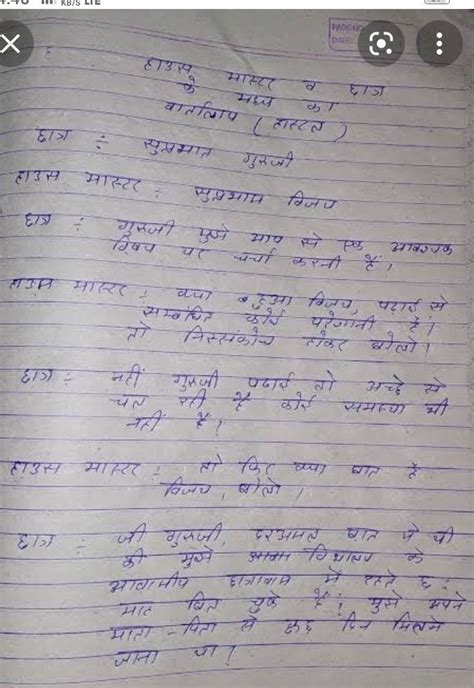 KB/S LTE
PAGE NO.
DATE
हाउस मास्टर व छात्र
के मध्य का
वार्तालाप (हास्टल)
छात्र ÷ सुप्रभात गुरुजी
हाउस मास्टर : सुप्रभात विजय
छात्र : गुरुजी मुझे आप से एक आवश्यक
विषय पर चर्चा करनी हैं।
हाउस मास्टर : क्या हुआ विजय, पढाई से
सम्बंधित कोई परेशानी हैं।
तो निस्संकोच होकर बोलो।
छात्र ÷ नहीं गुरुजी पढाई तो अच्छे से
चल रही है कोई समस्या भी
नहीं है।
हाउस मास्टर : तो फिर क्या बात है
विजय, बोलो।
छात्र ÷ जी गुरुजी, दरअसल बात ये थी
की मुझे विधालय के
छात्रावास में रहते
माह बित चुके है। मुझे अपने
माता-पिता से कुछ दिन मिलने
जाना था।